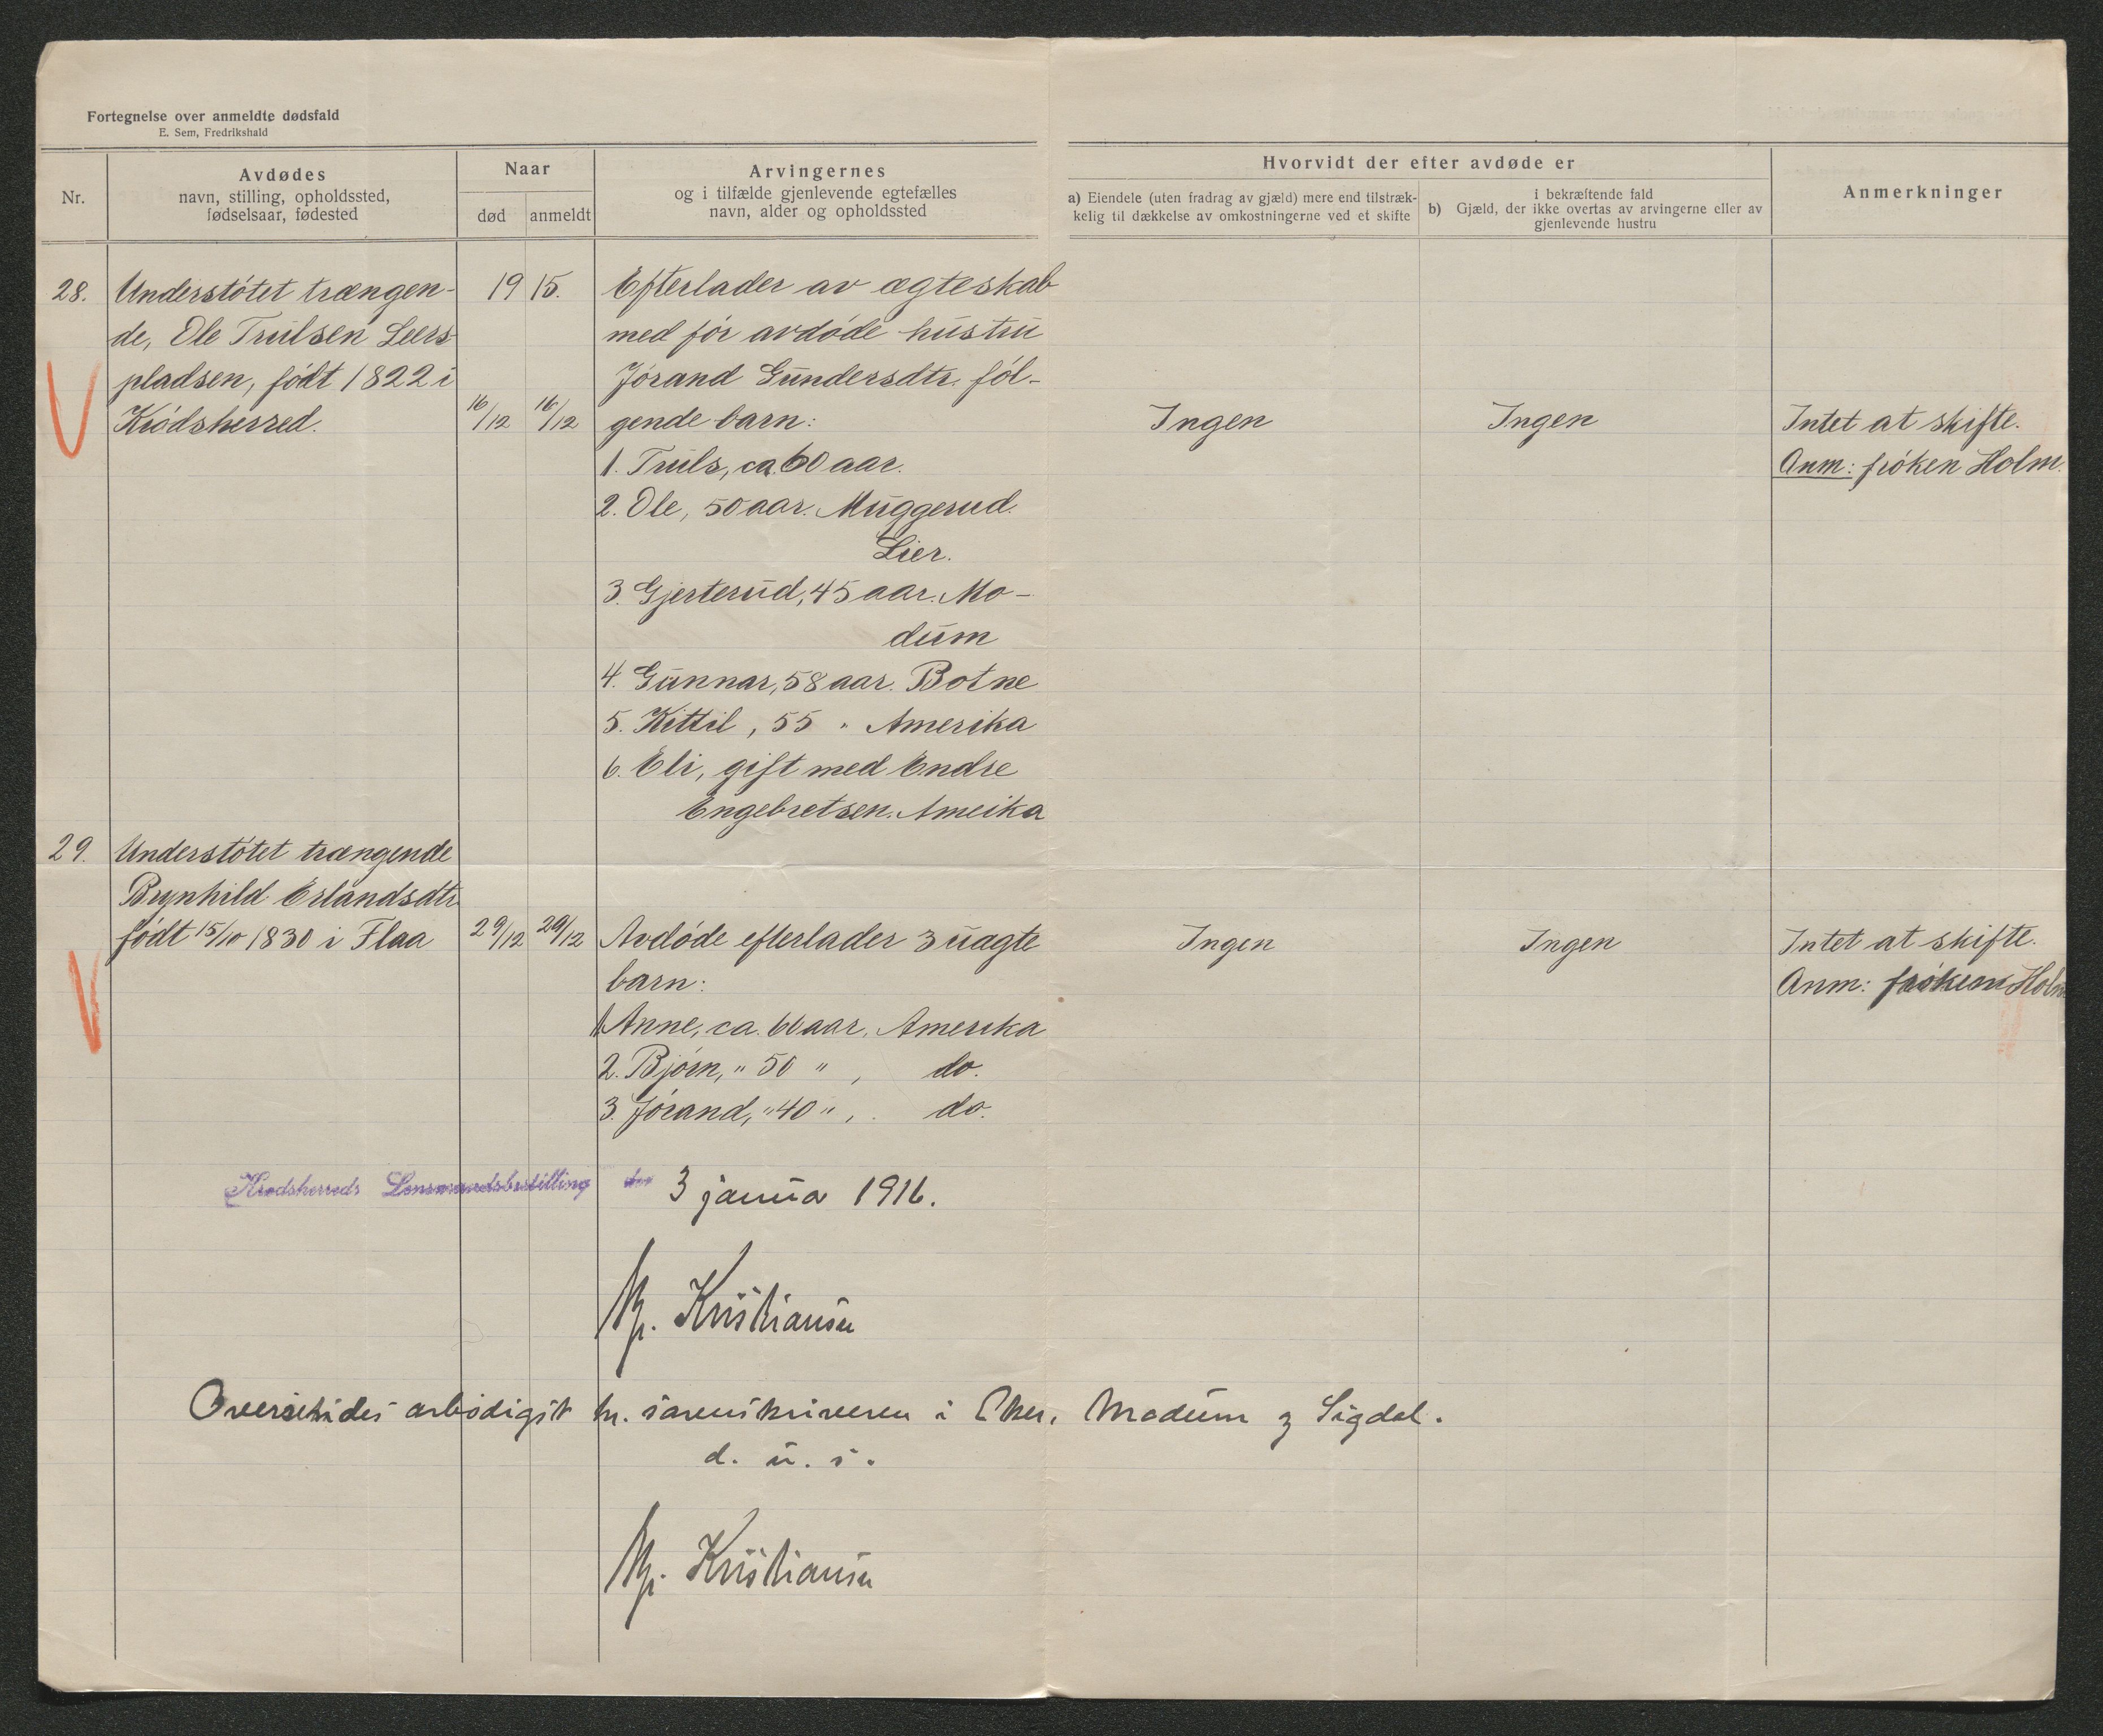 Fortegnelse over anmeldte dødsfald
E. Sem, Fredrikshald
Nr.
Avdødes
navn, stilling, opholdssted,
fødselsaar, fødested
Naar
død anmeldt
Arvingernes
og i tilfælde gjenlevende egtefælles
navn, alder og opholdssted
Hvorvidt der efter avdøde er
a) Eiendele (uten fradrag av gjæld) mere end tilstræk-
kelig til dækkelse av omkostningerne ved et skifte
i bekræftende fald
b) Gjæld, der ikke overtas av arvingerne eller av
gjenlevende hustru
Anmerkninger
28. Understötet trængen- 1915. Efterlader av ægteskab
de, Ole Trulsen Leers- med för avdöde hustru
pladsen, födt 1822 i Jörand Gundersdtr. föl-
Krödsherred. 16/12 16/12 gende barn: Ingen Ingen Intet at skifte.
1. Truls, ca. 60 aar. Anm: fröken Holm.
2. Ole, 50 aar. Muggerud.
Lier.
3. Gjerterud, 45 aar. Mo-
dum
4. Gunnar, 58 aar. Botne
5. Kittil, 55 " Amerika
6. Eli, gift med Endre
Engebretsen. Ameika
29. Understötet trængende
Brynhild Erlandsdtr.
födt 15/10 1830 i Flaa 29/12 29/12 Avdöde efterlader 3 uægte Ingen Ingen Intet at skifte.
barn: Anm: fröken Holm
1. Anne, ca. 60 aar, Amerika
2. Björn, " 50 " , do.
3. Jörand, " 40 " , do.
Krødsherreds Lensmandsbestilling den 3 janua 1916.
Kristiansen
Oversendes ærbødigst hr. sorenskriveren i Eker, Modum og Sigdal.
d. u. s.
Kristiansen